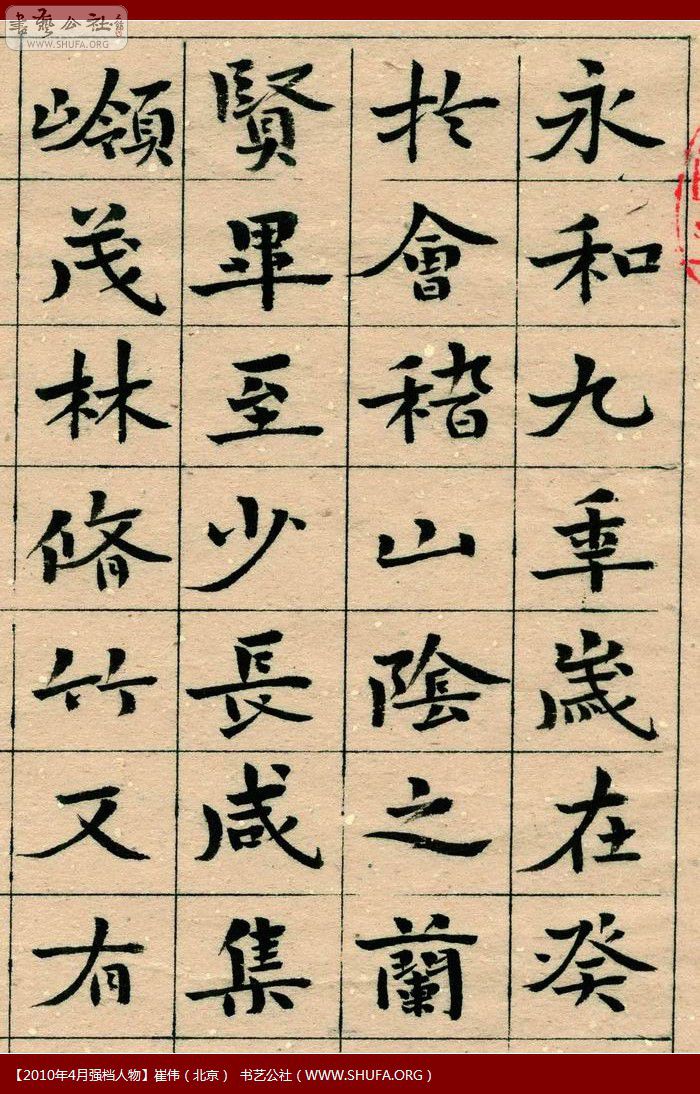 書藝公社
WWW.SHUFA.ORG
永和九年歲在癸
於會稽山陰之蘭
賢畢至少長咸集
嶺茂林脩竹又有
【2010年4月强档人物】崔伟（北京） 书艺公社（WWW.SHUFA.ORG）